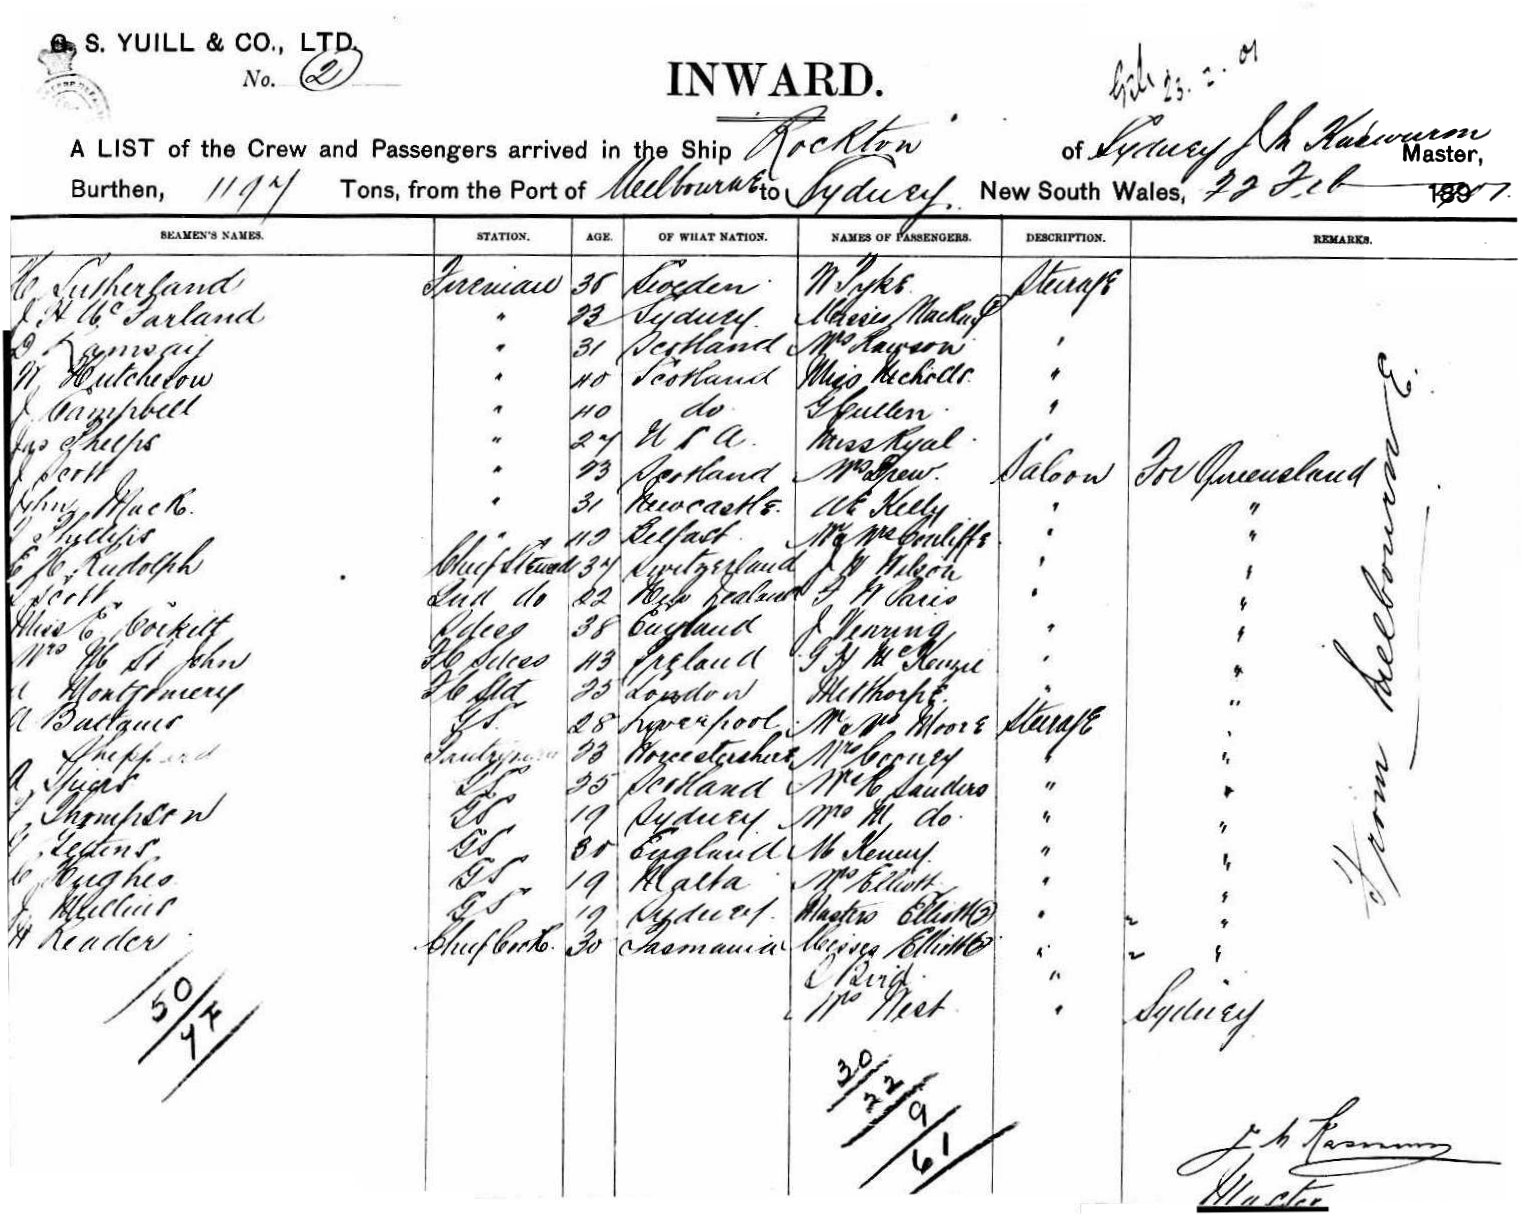 G. S. YUILL & CO., LTD.
No. 2
INWARD.
23.2.01
A LIST of the Crew and Passengers arrived in the Ship Rockton of Sydney J M Master,
Burthen, 1197 Tons, from the Port of Melbourne to Sydney New South Wales, 22 Feb 1901.
SEAMEN'S NAMES. STATION. AGE. OF WHAT NATION. NAMES OF PASSENGERS. DESCRIPTION. REMARKS.
H Sutherland Fireman 36 Sweden W Pyke Steerage
J H McFarland " 23 Sydney Misses Mackay (2)
D Ramsay " 31 Scotland Mrs Rawson "
W Hutcheson " 40 Scotland Miss Nicholls "
J Campbell " 40 do G Cullen "
Jas Phelps " 27 U S A. Miss Ryal "
J Scott " 23 Scotland Mrs Drew. Saloon For Queensland
John Mack. " 31 Newcastle. Kelly " "
Phillips " 42 Belfast Mr & Mrs Conliffe " "
E H Rudolph Chief Steward 37 Switzerland J W Wilson " "
Scott 2nd do 22 New Zealand F W Paris " "
Miss E Corkitt Sdess 38 England J " "
Mrs M St John FC Sdess 43 Ireland G H McKenzie " "
Montgomery FC Std 25 London " "
A GS. 28 Liverpool Mr & Mrs Moore Steerage "
Sheppard Pantryman 23 Worcestershire Mrs Cooney " "
A Spiers GS 25 Scotland Mr H Sanders " "
Thompson GS 19 Sydney Mrs M do. " "
GS 30 England M Kenny. " "
C Hughes GS 19 Malta Mrs Elliott " "
J Mullins GS 19 Sydney Masters Elliott (3) " " "
H Reader Chief Cook. 30 Tasmania Misses Elliott " " "
Bird "
Mrs West " Sydney
From Melbourne
50
47
30
22
9
61
J M
Master